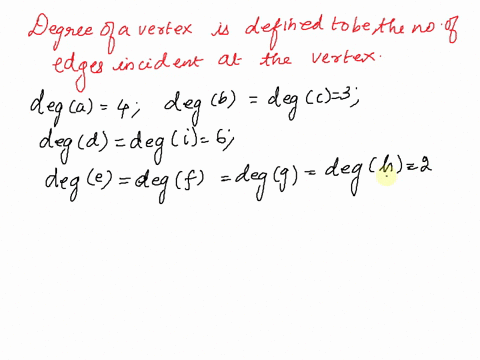 Degree of a vertex is defined to be, the no. of
edges incident at the vertex.
deg(a) = 4; deg(b) = deg(c)=3;
deg(d) = deg(i) = 6;
deg(e) = deg(f) = deg(g) = deg(h) = 2